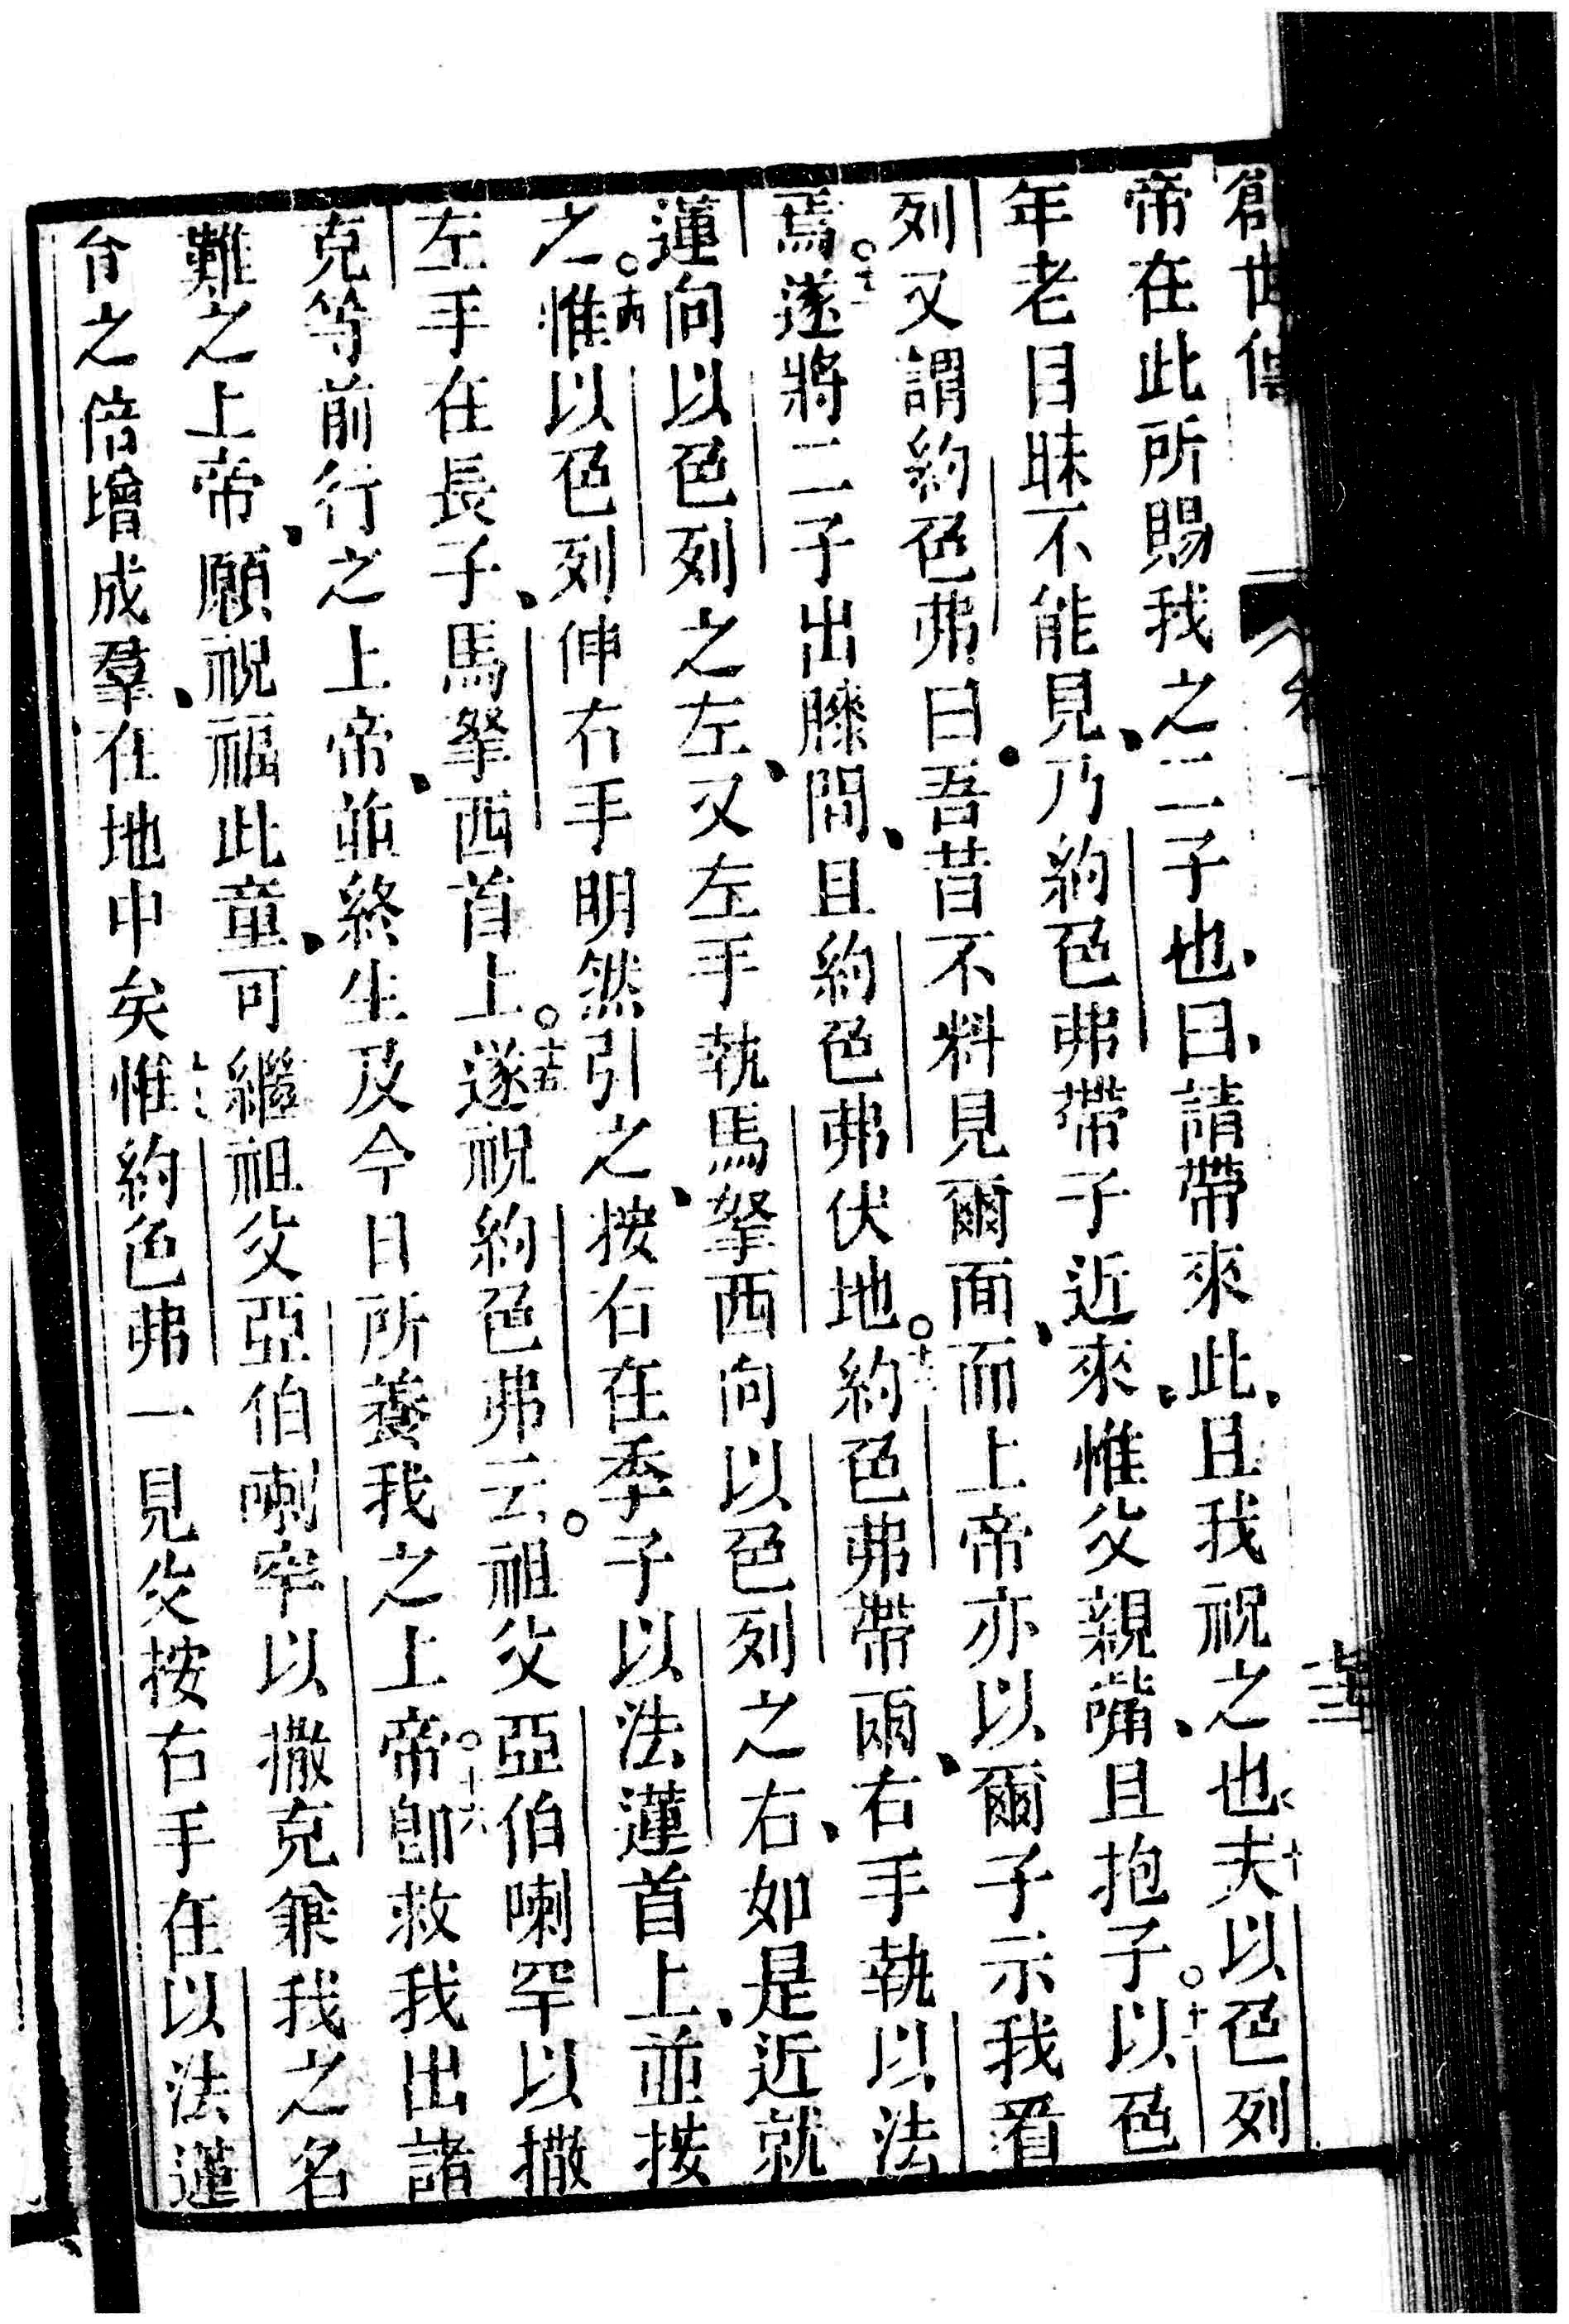 創世傳
帝在此所賜我之二子也、曰、請帶來此、且我祝之也、十夫以色列
年老目昧不能見、乃約色弗帶子近來、惟父親嘴、且抱子。十一以色
列又謂約色弗曰、吾昔不料見爾面、而上帝亦以爾子示我看
焉。十二遂將二子出膝間、且約色弗伏地。十三約色弗帶兩、右手執以法
蓮向以色列之左、又左手執馬拏西向以色列之右、如是近就
之。十四惟以色列伸右手明然引之、按右在季子以法蓮首上、並按
左手在長子、馬拏西首上。十五遂祝約色弗云。祖父亞伯喇罕以撒
克等前行之上帝、並終生及今日所養我之上帝。十六卽救我出諸
難之上帝、願祝福此童、可繼祖父亞伯喇罕以撒克兼我之名
之倍增成羣、在地中矣十七惟約色弗一見父按右手在以法蓮